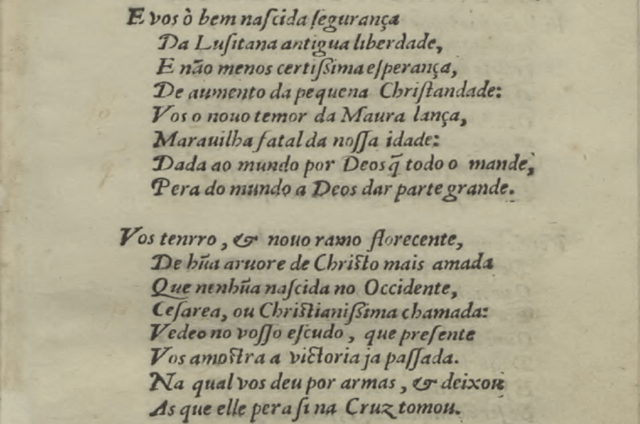 E vos ò bem naſcida ſegurança
Da Luſitana antigua liberdade,
E não menos certiſsima eſperança,
De aumento da pequena Chriſtandade:
Vos o nouo temor da Maura lança,
Marauilha fatal da noſſa idade:
Dada ao mundo por Deos q̃ todo o mande,
Pera do mundo a Deos dar parte grande.
Vos tenrro, & nouo ramo florecente,
De hũa aruore de Chriſto mais amada
Que nenhũa naſcida no Occidente,
Ceſarea, ou Chriſtianiſsima chamada:
Vedeo no voſſo eſcudo, que preſente
Vos amoſtra a victoria ja paſſada.
Na qual vos deu por armas, & deixou
As que elle pera ſi na Cruz tomou.